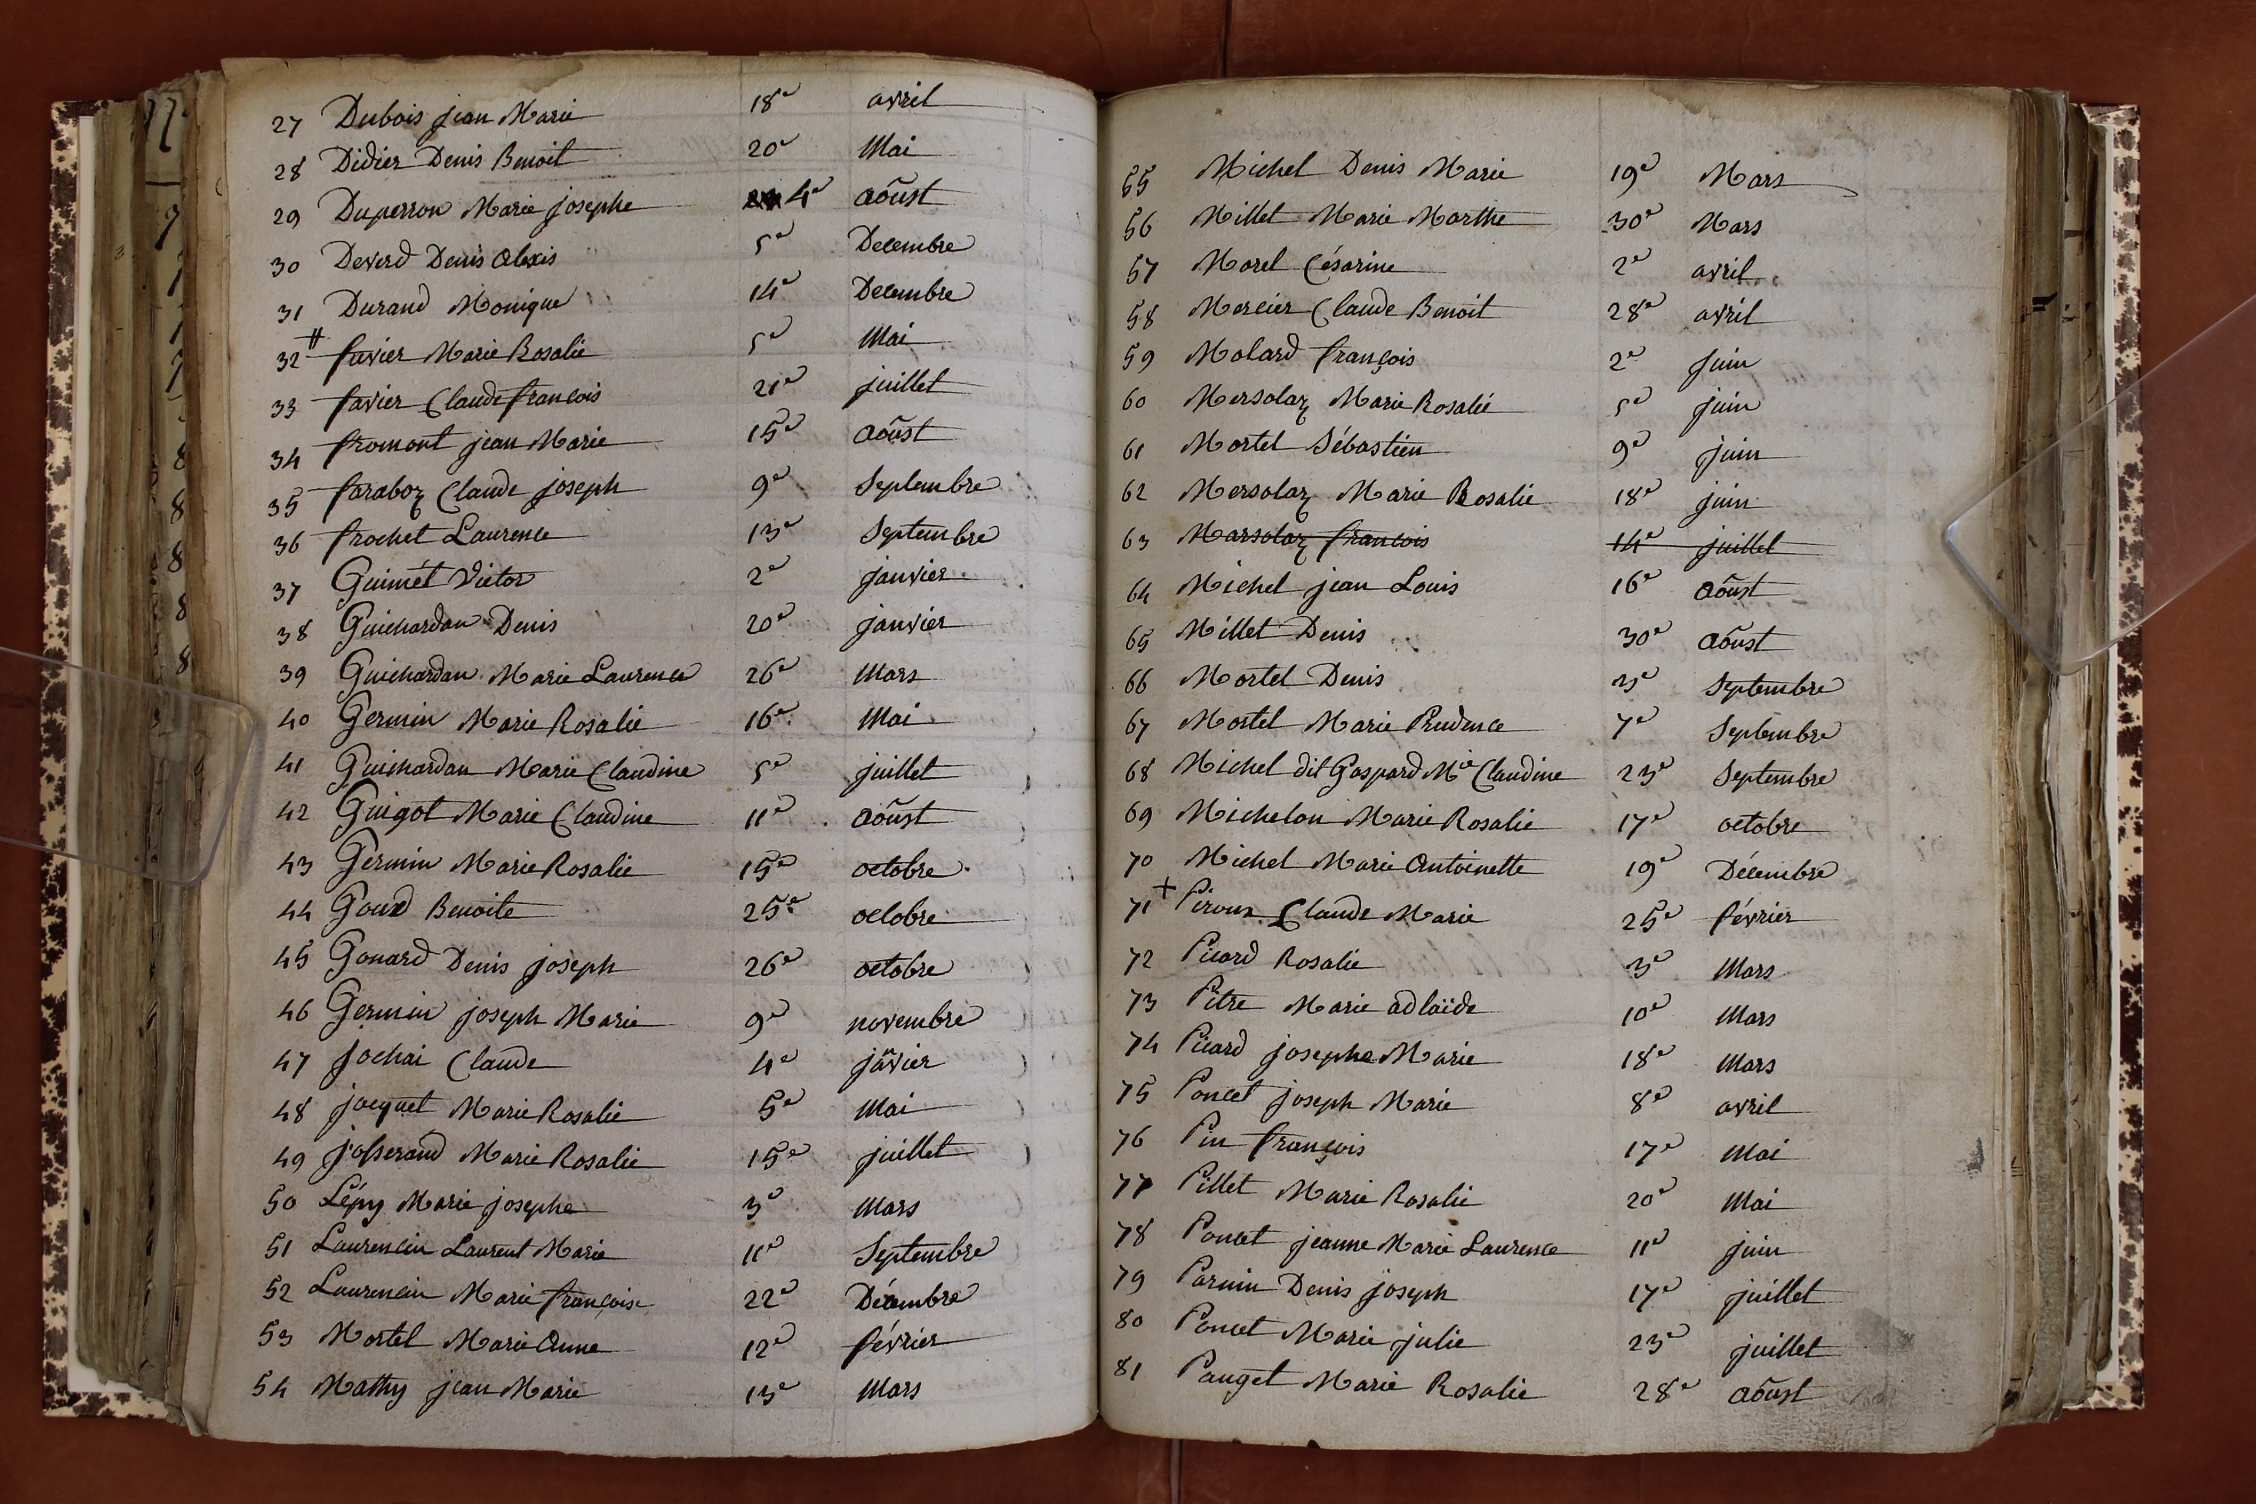 27 Dubois jean Marie 18e avril
28 Didier Denis Benoit 20e Mai
29 Duperron Marie josephe 4e aôust
30 Deverd Denis alexis 5e Decembre
31 Durand Monique 14e Decembre
32 # favier Marie Rosalie 5e Mai
33 favier Claude francois 21e juillet
34 fromont jean Marie 15e aôust
35 faraboz Claude joseph 9e Septembre
36 frochet Laurence 13e Septembre
37 Guimét Victor 2e janvier
38 Guichardan Denis 20e janvier
39 Guichardan Marie Laurence 26e Mars
40 Germin Marie Rosalie 16e Mai
41 Guichardan Marie Claudine 5e juillet
42 Guigot Marie Claudine 11e aôust
43 Germin Marie Rosalie 15e octobre
44 Goud Benoite 25e octobre
45 Gonard Denis joseph 26e octobre
46 Germin joseph Marie 9e novembre
47 jochai Claude 4e jāvier
48 jacquet Marie Rosalie 5e Mai
49 josserand Marie Rosalie 15e juillet
50 Lépy Marie josephe 3e Mars
51 Laurencin Laurent Marie 11e Septembre
52 Laurencin Marie françoise 22e Décembre
53 Mortel Marie Anne 12e février
54 Mathy jean Marie 13e Mars
55 Michel Denis Marie 19e Mars
56 Millet Marie Marthe 30e Mars
57 Morel Césarine 2e avril
58 Mercier Claude Benoit 28e avril
59 Molard françois 2e juin
60 Mersolaz Marie Rosalie 5e juin
61 Mortel Sébastien 9e juin
62 Mersolaz Marie Rosalie 18e juin
63 Marsolaz francois 14e juillet
64 Michel jean Louis 16e aôust
65 Millet Denis 30e aôust
66 Mortel Denis 3e Septembre
67 Mortel Marie Prudence 7e Septembre
68 Michel dit Gaspard Mie Claudine 23e Septembre
69 Michelon Marie Rosalie 17e octobre
70 Michel Marie Antoinette 19e Décembre
71 + Piroux Claude Marie 25e février
72 Picard Rosalie 3e Mars
73 Pitre Marie adlaïde 10e Mars
74 Picard josephe Marie 18e Mars
75 Poncet joseph Marie 8e avril
76 Pin françois 17e Mai
77 Pillet Marie Rosalie 20e Mai
78 Poncet jeanne Marie Laurence 11e juin
79 Parnin Denis joseph 17e juillet
80 Poncet Marie julie 23e juillet
81 Pauget Marie Rosalie 28e aôust